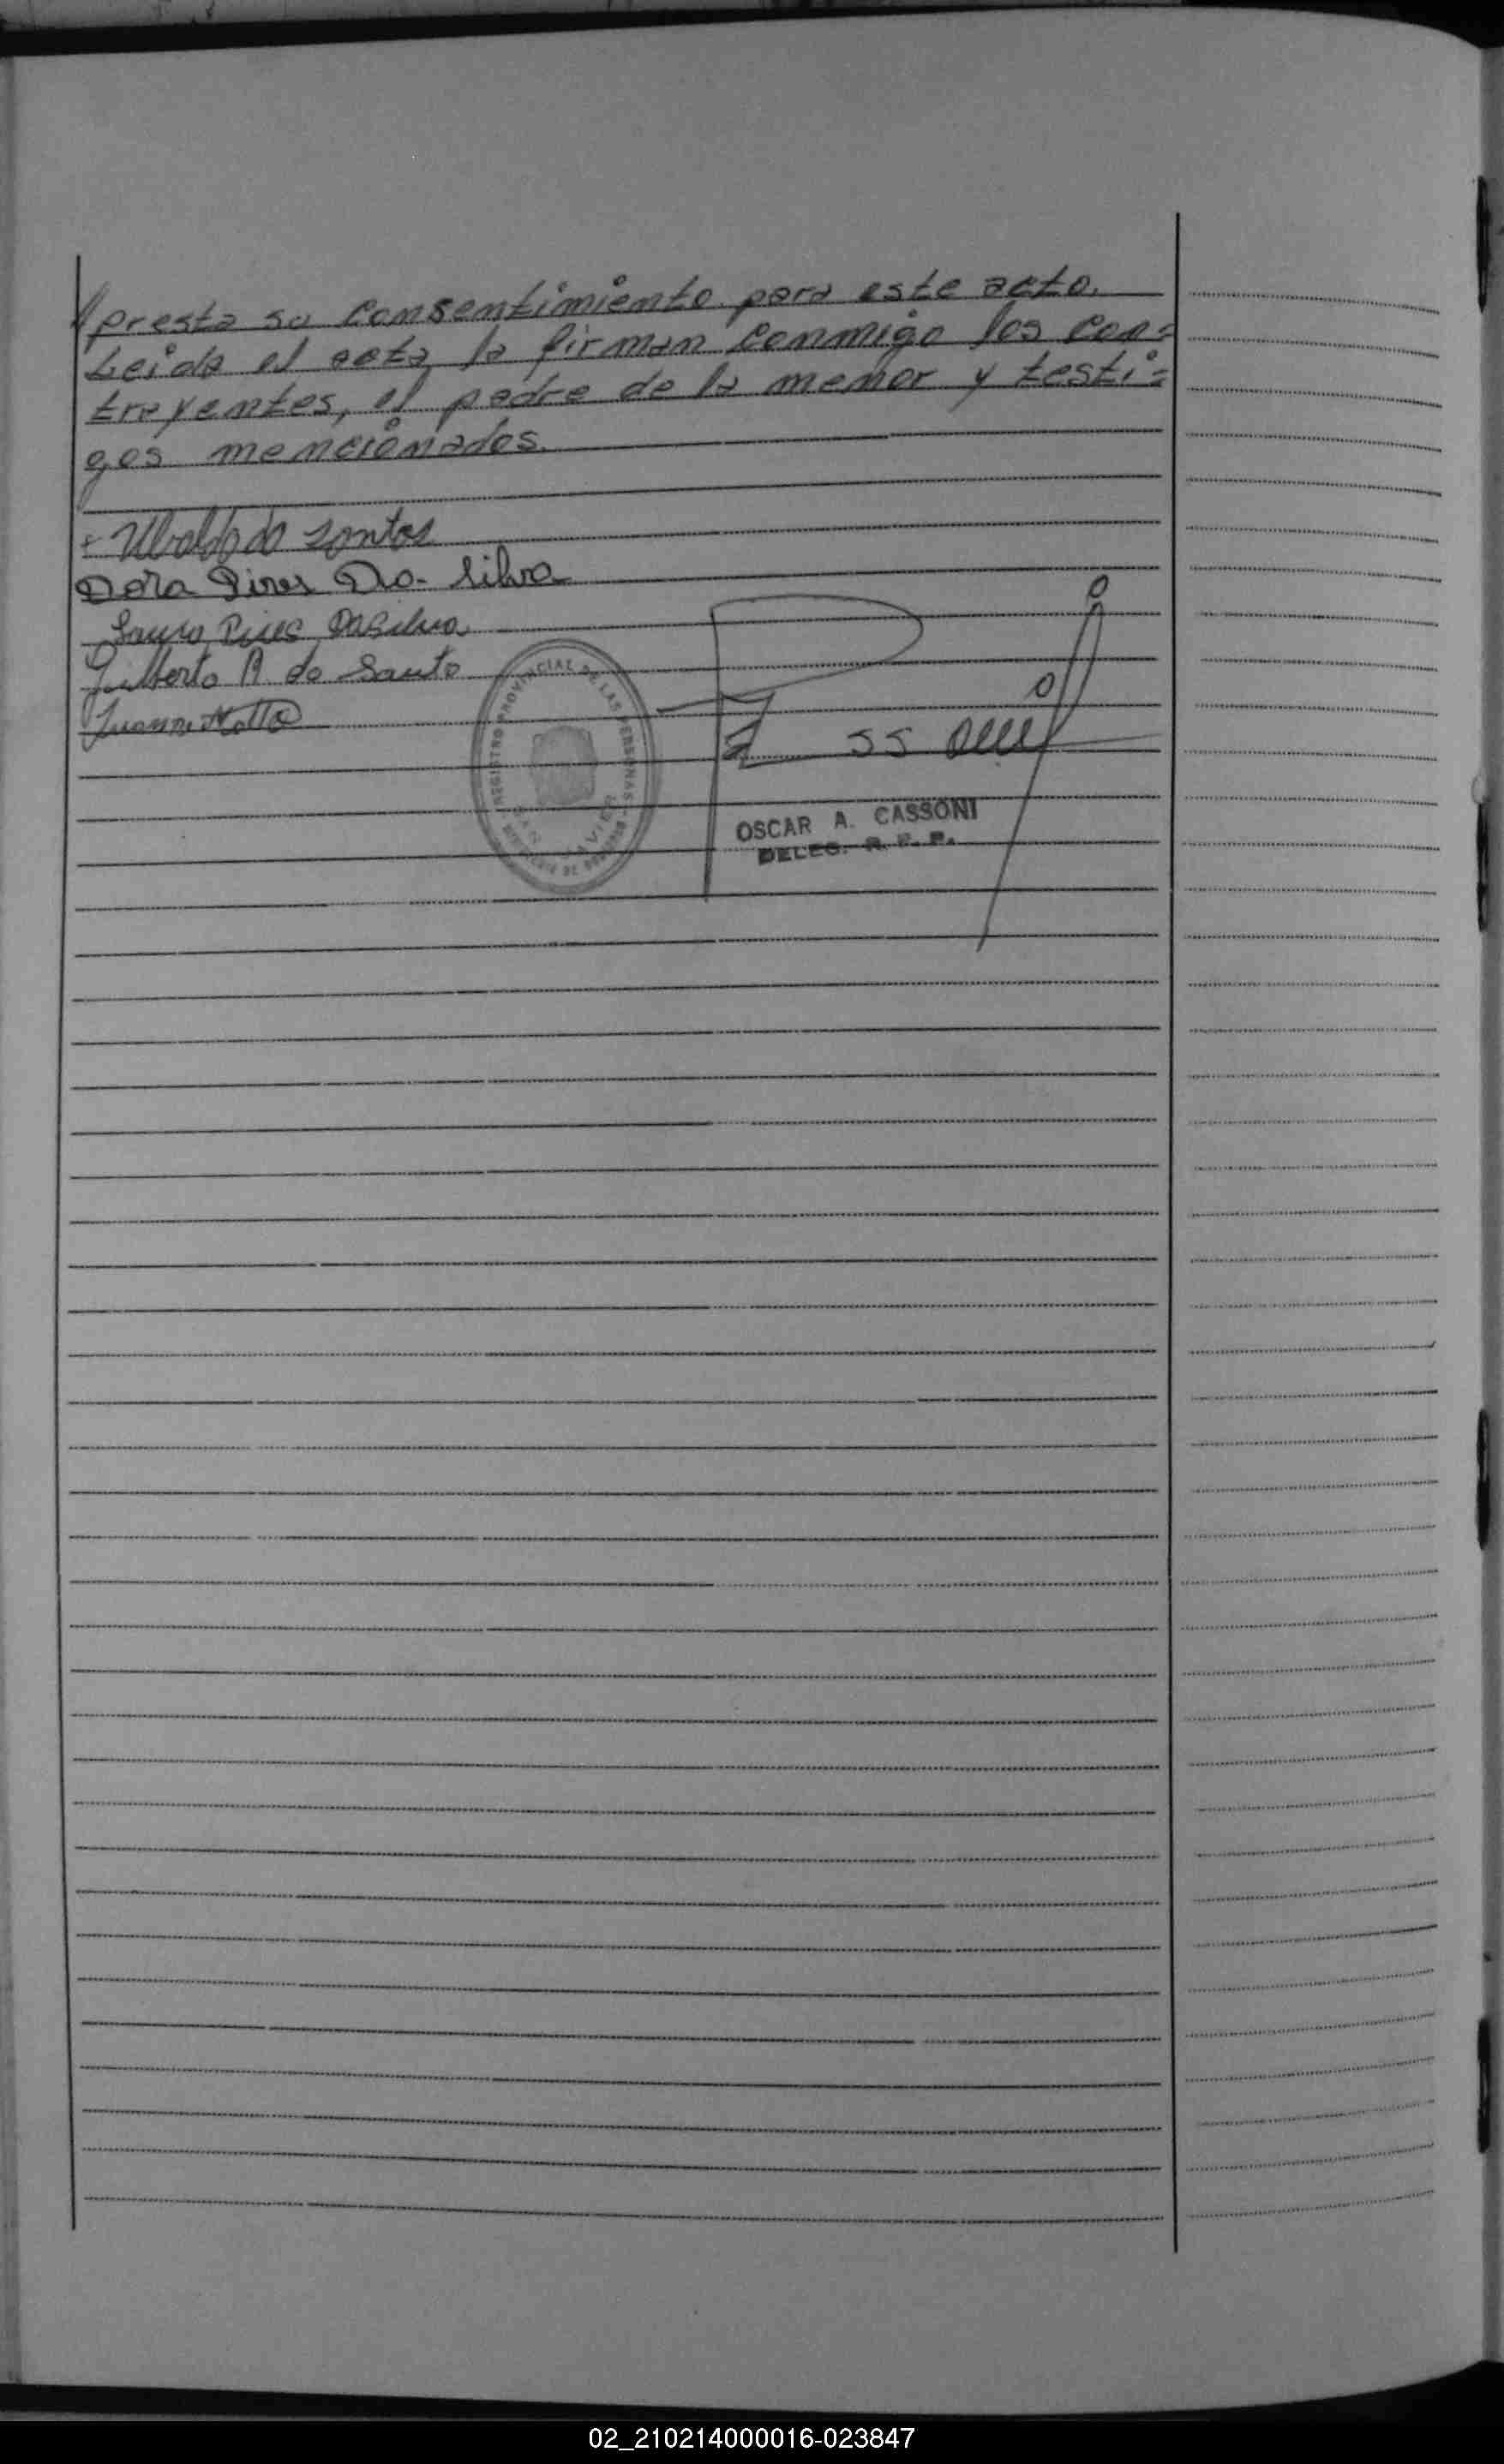 //presta su consentimiento para este acto.
Leida el acta, la firman conmigo los con=
trayentes, el padre de la menor y testi=
gos mencionados.
Ubaldo do santos
Dora Pires Da. Silva
Pires Dasilva
Gilberto A. do Santo
REGISTRO PROVINCIAL DE LAS PERSONAS
SAN JAVIER
OSCAR A. CASSONI
DELEG. R. P. P.
02_210214000016-023847